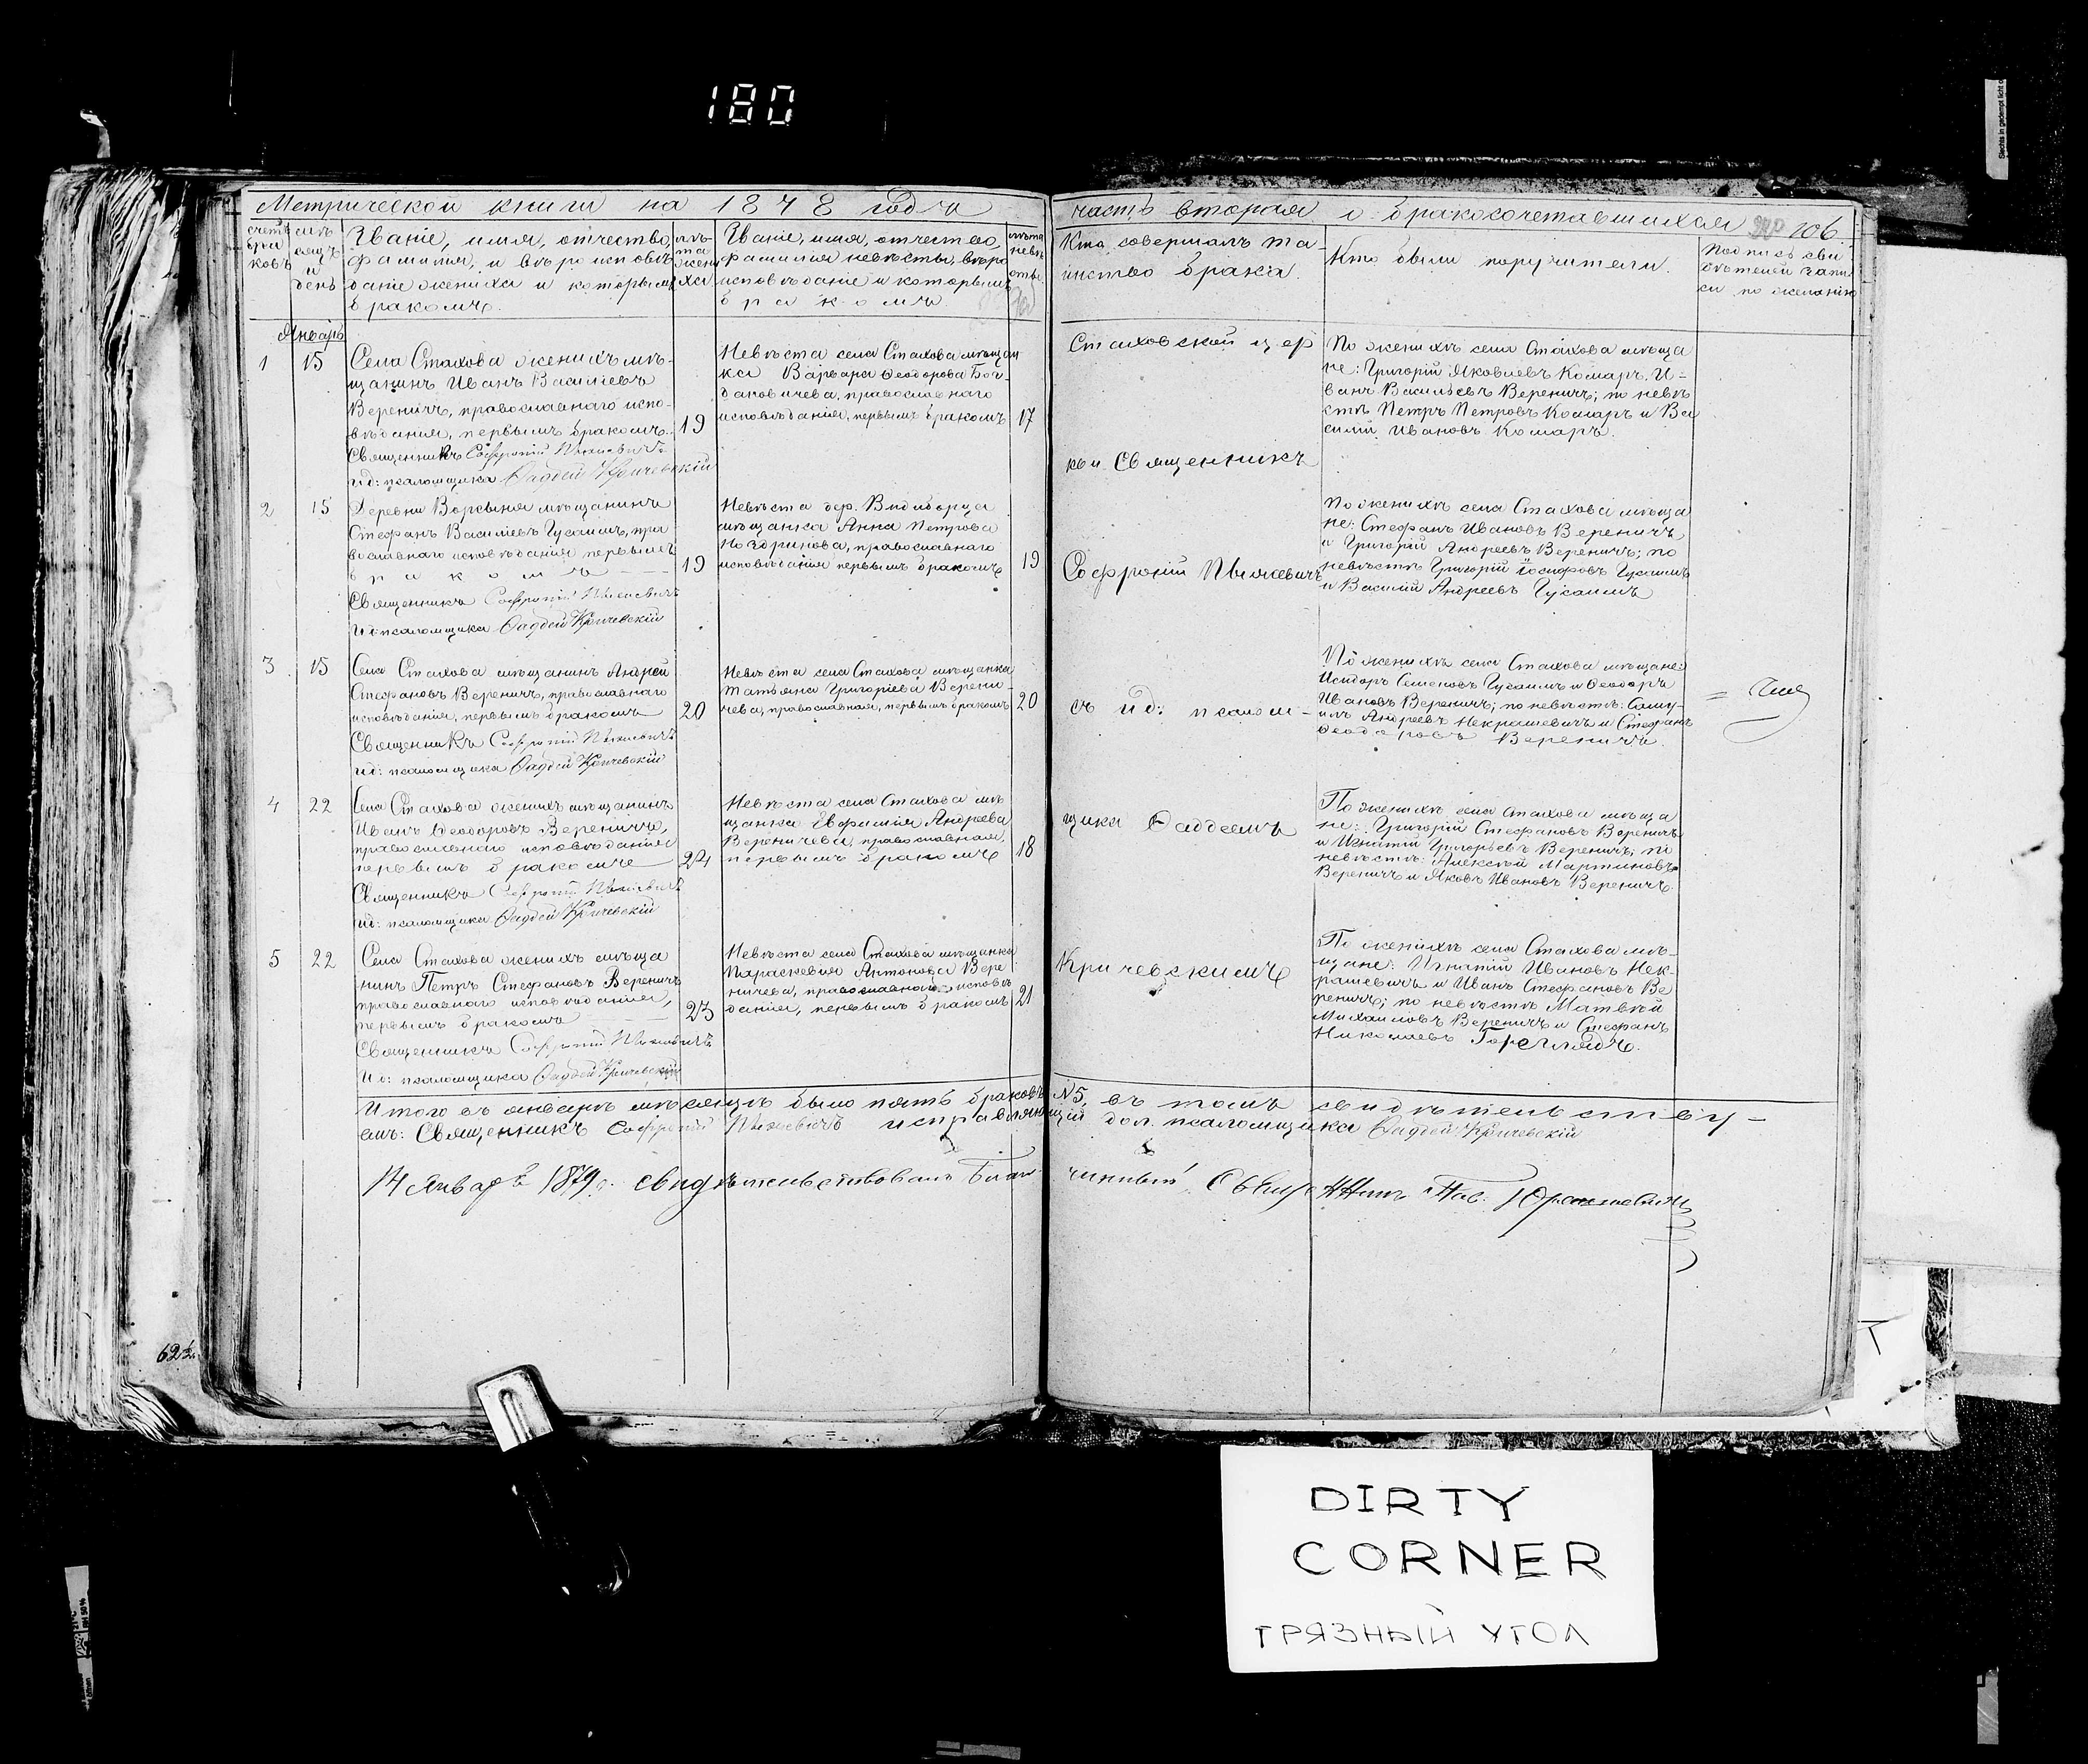 180
Метрической книги на 1878 года
часть вторая о бракосочетавшихся 106
счетъ браковъ
мѣсяцъ и день
Званіе, имя, отчество,
фамилія, и вѣроисповѣ
даніе жениха и которымъ
бракомъ.
лѣта жениха
Званіе, имя, отчество,
фамилія невѣсты, вѣро
исповѣданіе и которымъ
бракомъ
лѣта невѣсты
Кто совершалъ та-
инство брака.
Кто были поручители.
Подпись сви
дѣтелей запи
си по желанію
Январь
1
15
Села Стахова женихъ мѣ-
щанинъ Иванъ Василіевъ
Вереничъ, православнаго испо-
вѣданія, первымъ бракомъ.
19
Священникъ Софроній
ид: псаломщика Фаддей Кричевскій
Невѣста села Стахова мѣщан
ка Варвара Ѳеодорова Бог-
дановичева, православнаго
исповѣданія, первымъ бракомъ
17
Стаховской цер
По женихѣ села Стахова мѣща
не: Григорій Яковлевъ Комаръ, И=
ванъ Васильевъ Вереничъ; по невѣ
стѣ Петръ Петровъ Комаръ и Ва
силій Ивановъ Комаръ.
кви Священникъ
2
15
Деревни Ворсыня мѣщанинъ
Стефанъ Василіевъ Гусаимъ, пра
вославнаго исповѣданія первымъ
бракомъ
19
Священникъ Софроній
ид: псаломщика Фаддей Кричевскій
Невѣста дер. Видиборца
мѣщанка Анна Петрова
Ноздринова, православнаго
исповѣданія первымъ бракомъ
19
Софроній
По женихѣ села Стахова мѣща
не: Стефанъ Ивановъ Вереничъ
и Григорій Андреевъ Вереничъ; по
невѣстѣ Григорій Іосифовъ Гусаимъ
и Василій Андреевъ Гусаимъ
3
15
Села Стахова мѣщанинъ Андрей
Стефановъ Вереничъ, православнаго
исповѣданія, первымъ бракомъ
20
Священникъ Софроній
ид: псаломщика Фаддей Кричевскій
Невѣста села Стахова мѣщанка
Татьяна Григоріева Верени-
чева, православная, первымъ бракомъ
20
съ ид: псалом-
По женихѣ села Стахова мѣщане:
Исидоръ Семеновъ Гусаимъ и Ѳеодоръ
Ивановъ Вереничъ; по невѣстѣ: Саму-
илъ Андреевъ Некрашевичъ и Стефанъ
Ѳеодоровъ Вереничъ.
4
22
Села Стахова женихъ мѣщанинъ
Иванъ Ѳеодоровъ Вереничъ,
православнаго исповѣданія
первымъ бракомъ
24
Священникъ Софроній
ид: псаломщика Фаддей Кричевскій
Невѣста села Стахова мѣ
щанка Евфимія Андреева
Вереничева, православная,
первымъ бракомъ
18
щика Ѳаддеемъ
По женихѣ села Стахова мѣща
не: Григорій Стефановъ Вереничъ
и Игнатій Григорьевъ Вереничъ; по
невѣстѣ: Алексѣй Мартиновъ
Вереничъ и Яковъ Ивановъ Вереничъ.
5
22
Села Стахова женихъ мѣща
нинъ Петръ Стефановъ Вереничъ
православнаго исповѣданія,
первымъ бракомъ
23
Священникъ Софроній
Ид: псаломщика Фаддей Кричевскій
Невѣста села Стахова мѣщанка
Параскевія Антонова Вере
ничева, православнаго исповѣ
данія, первымъ бракомъ
21
Кричевскимъ
По женихѣ села Стахова мѣ-
щане: Игнатій Ивановъ Нек-
рашевичъ и Иванъ Стефановъ Ве
реничъ; по невѣстѣ Матвѣй
Михаиловъ Вереничъ и Стефанъ
Николаевъ Гореглядъ.
Итого въ январѣ мѣсяцѣ было пять браковъ №5, въ томъ свидѣтельству-
емъ: Священникъ Софроній исправляющій дол. псаломщика Фаддей Кричевскій
14 Января 1879 г. свидѣтельствовалъ Благочинный Священникъ
62
DIRTY
CORNER
ГРЯЗНЫЙ УГОЛ